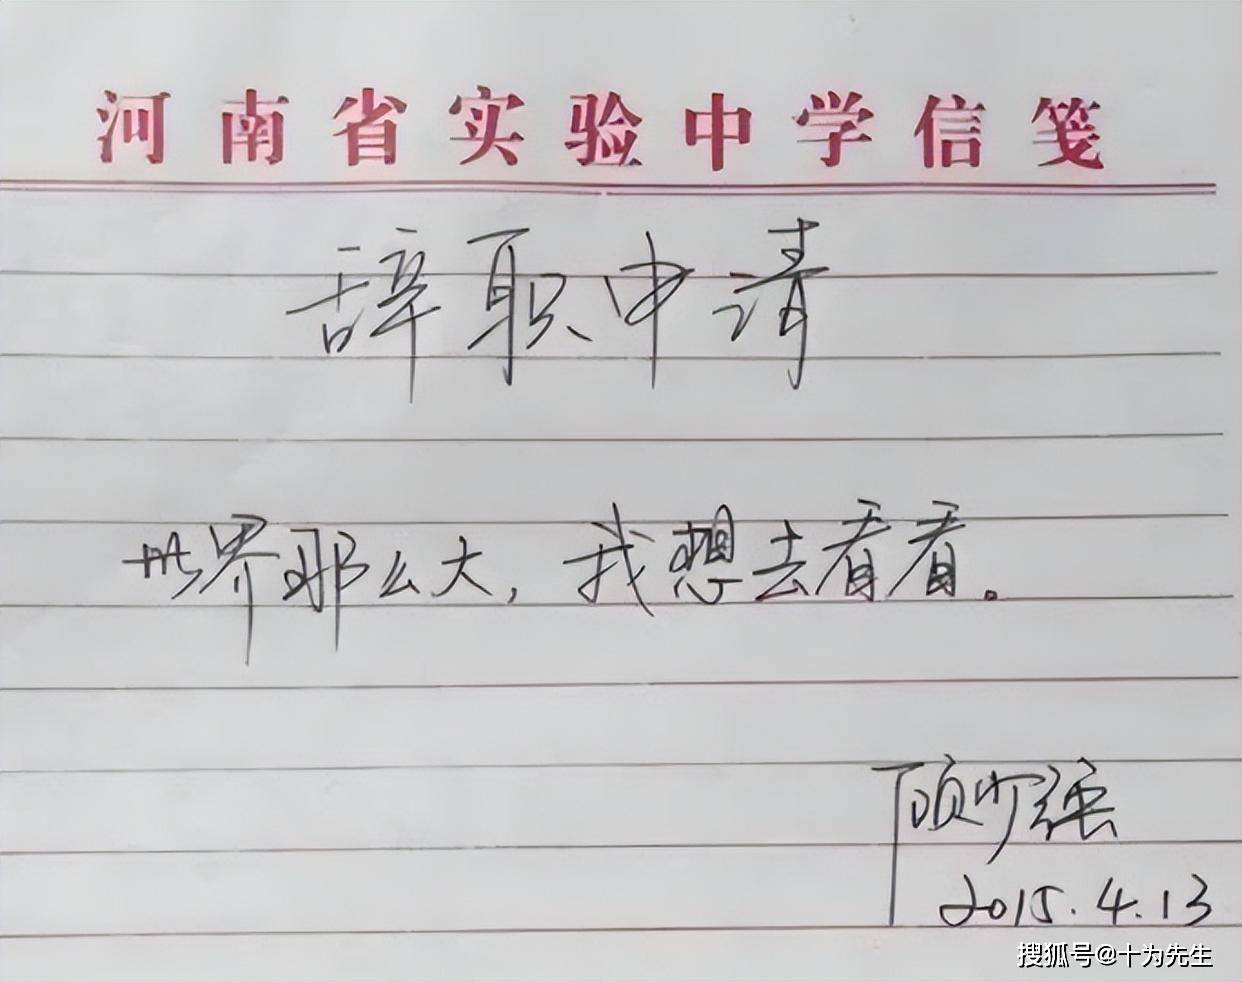 河南省实验中学信笺
辞职申请
世界那么大，我想去看看。
顾少强
2015.4.13
搜狐号@十为先生